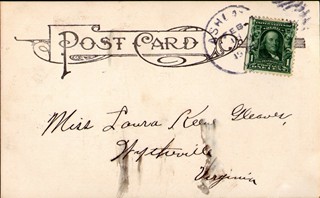 POST CARD
Miss Laura Kee Cleaver,
Wytheville
Virginia